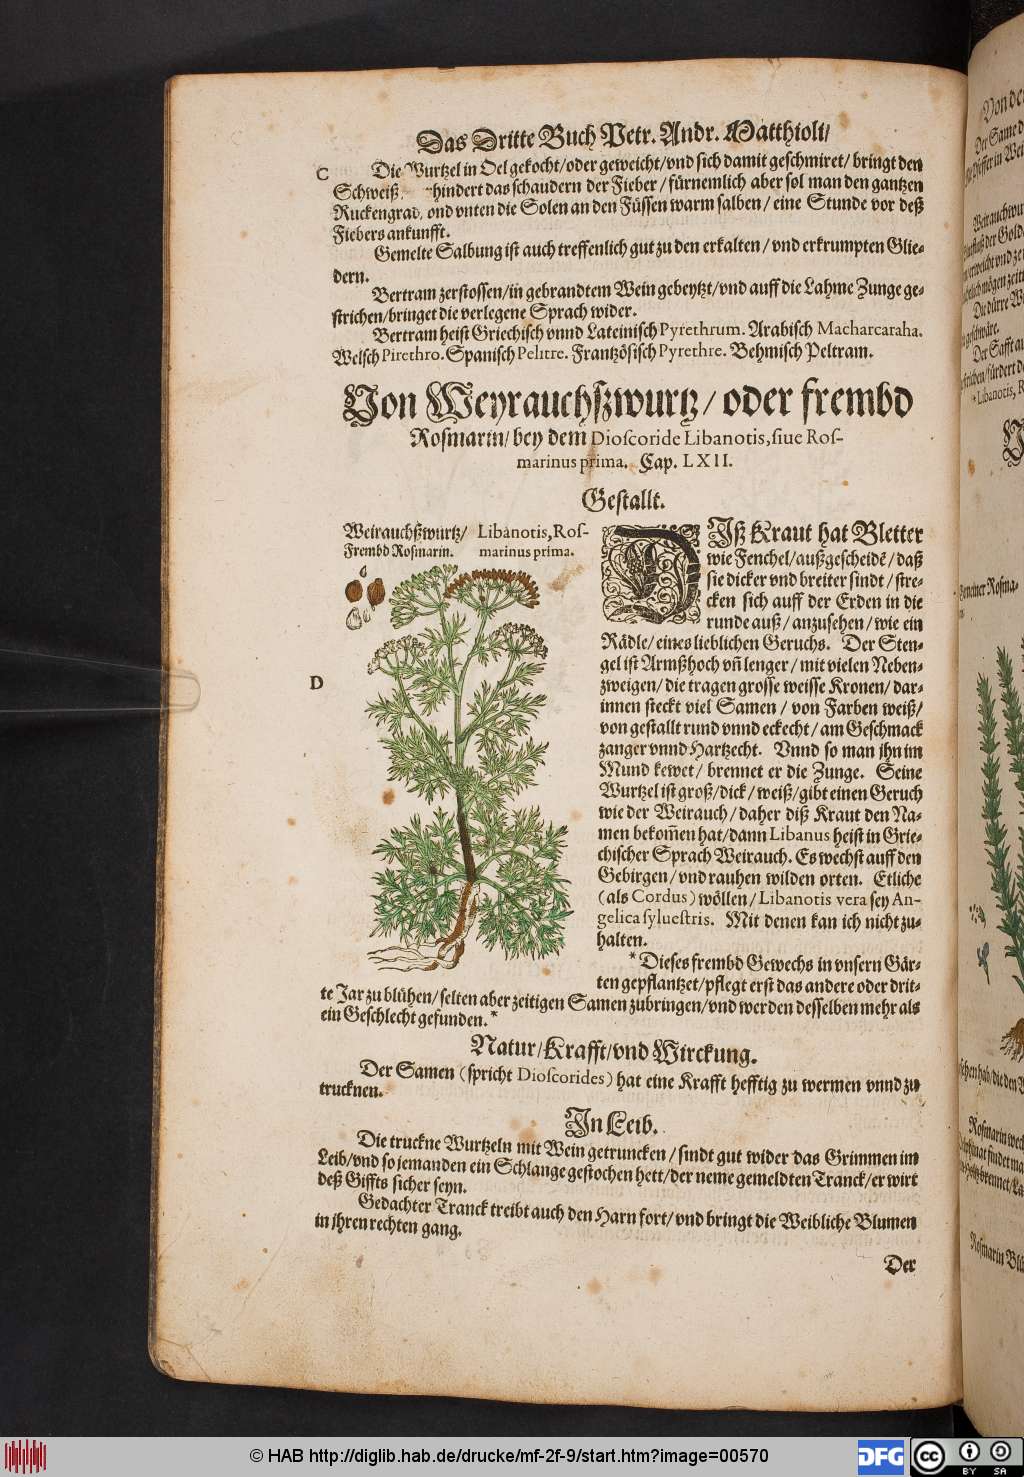 Das Dritte Buch Petr. Andr. Matthioli/
C
Die Wurtzel in Oel gekocht/oder geweicht/vnd sich damit geschmiret/ bringt den
Schweiß, hindert das schaudern der Fieber / fürnemlich aber sol man den gantzen
Ruckengrad, vnd vnten die Solen an den Füssen warm salben / eine Stunde vor deß
Fiebers ankunfft.
Gemelte Salbung ist auch treffenlich gut zu den erkalten / vnd erkrumpten Glie-
dern.
Bertram zerstossen/in gebrandtem Wein gebeytzt/vnd auff die Lahme Zunge ge-
strichen/bringet die verlegene Sprach wider.
Bertram heist Griechisch vnnd Lateinisch Pyrethrum. Arabisch Macharcaraha.
Welsch Pirethro. Spanisch Pelitre. Frantzösisch Pyrethre. Behmisch Peltram.
Von Weyrauchßwurtz/ oder frembd
Rosmarin/ bey dem Dioscoride Libanotis, siue Ros-
marinus prima. Cap. LXII.
Gestallt.
Weirauchßwurtz/
Frembd Rosmarin.
Libanotis, Ros-
marinus prima.
DIß Kraut hat Bletter
wie Fenchel/außgescheidē/daß
sie dicker vnd breiter sindt /stre-
cken sich auff der Erden in die
runde auß/ anzusehen/wie ein
Rädle/ eines lieblichen Geruchs. Der Sten-
gel ist Armßhoch vñ lenger/ mit vielen Neben-
zweigen/ die tragen grosse weisse Kronen/ dar-
D
innen steckt viel Samen / von Farben weiß/
von gestallt rund vnnd eckecht/ am Geschmack
zanger vnnd Hartzecht. Vnnd so man ihn im
Mund kewet/ brennet er die Zunge. Seine
Wurtzel ist groß/dick/ weiß/gibt einen Geruch
wie der Weirauch /daher diß Kraut den Na-
men bekom̄en hat/dann Libanus heist in Grie-
chischer Sprach Weirauch. Es wechst auff den
Gebirgen/ vnd rauhen wilden orten. Etliche
(als Cordus) wöllen/ Libanotis vera sey An-
gelica syluestris. Mit denen kan ich nicht zu-
halten.
* Dieses frembd Gewechs in vnsern Gär-
ten gepflantzet/pflegt erst das andere oder drit-
te Jar zu blühen/ selten aber zeitigen Samen zubringen/vnd werden desselben mehr als
ein Geschlecht gefunden.*
Natur/Krafft/vnd Wirckung.
Der Samen (spricht Dioscorides) hat eine Krafft hefftig zu wermen vnnd zu
trucknen.
In Leib.
Die truckne Wurtzeln mit Wein getruncken / sindt gut wider das Grimmen im
Leib/vnd so jemanden ein Schlange gestochen hett/der neme gemeldten Tranck/er wirt
deß Giffts sicher seyn.
Gedachter Tranck treibt auch den Harn fort/ vnd bringt die Weibliche Blumen
in jhren rechten gang.
Der
© HAB http://diglib.hab.de/drucke/mf-2f-9/start.htm?image=00570
DFG
cc
BY
SA